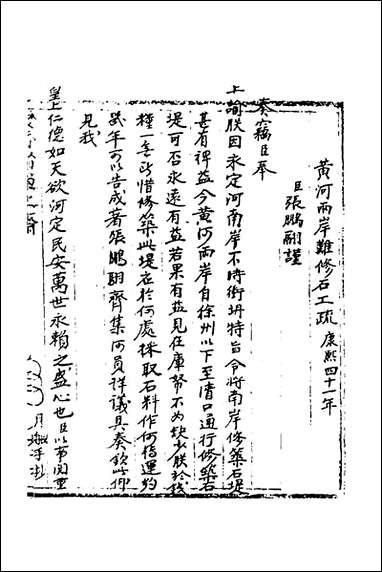 黃河兩岸難修石工疏 康熙四十一年
臣張鵬翮謹
奏竊臣奉
上諭朕因永定河南岸不時衝坍特旨令將南岸修築石堤
甚有裨益今黃河兩岸自徐州以下至清口通行修築石
堤可否永遠有益若果有益見在庫帑不為缺少朕於技
種一無所惜修築此堤應於何處採取石料作何搭運約
幾年可以告成著張鵬翮齊集河員詳議具奏欽此仰
見我
皇上仁德如天欲河定民安萬世永賴之盛心也臣以事關重